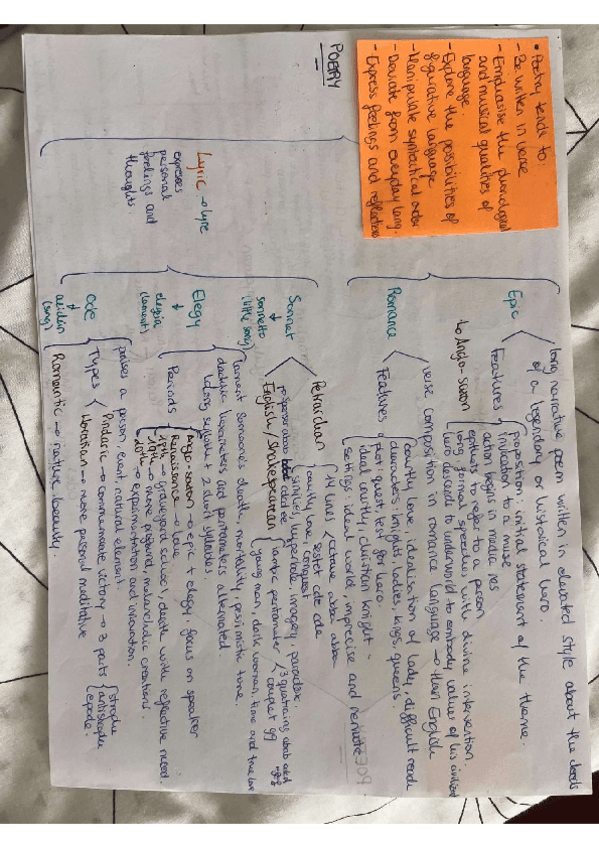 POETRY
• Poetry tends to:
- Be written in verse
- Emphasise the phonological
and musical qualities of
language.
- Explore the possibilities of
figurative language
- Manipulate syntactical order
- Deviate from everyday lang.
- Express feelings and reflection
Epic
long narrative poem written in elevated style about the deeds
of a legendary or historical hero.
Features
proposition: initial statement of the theme.
invocation to a muse
action begins in media res
epithets to refer to a person
long formal speeches with divine intervention.
hero descends to underworld to embody values of his
to Anglo-saxon
Romance
verse composition in romance language → then English
Features
Courtly love, idealisation of lady, difficult
characters: knights, ladies, kings, queens.
plot: quest, test for hero.
ideal courtly, christian knight -
settings: ideal world, imprecise and remote
Lyric → lyre
expresses
personal
feelings and
thoughts.
Sonnet
sonnetto
(little song)
Petrarchan
14 lines
octave abba abba
sestet cde cde
courtly love, conquest
similies, hyperbole, imagery, paradoxe.
English/Shakespearean
iambic pentameter
3 quatrains abab cdcd
efgf
couplet gg
young man, dark woman, time and true love
Elegy
elegia
(lament)
lament someone's death, mortality, pessimistic tone.
dactylic hexameters and pentameters alternated
1 long syllable + 2 short syllables.
Periods
Anglo-saxon → epic + elegy, focus on speaker
Renaissance → love
→ graveyard school, death with reflective mood
19th → more profound, melancholic creations.
20th → experimentation and innovation.
Ode
aeidein
(song)
praises a person, event, natural element.
Types
Pindaric → commemorate victory → 3 parts
strophe
antistrophe
epode.
Horatian → more personal meditative
Romantic → nature beauty.